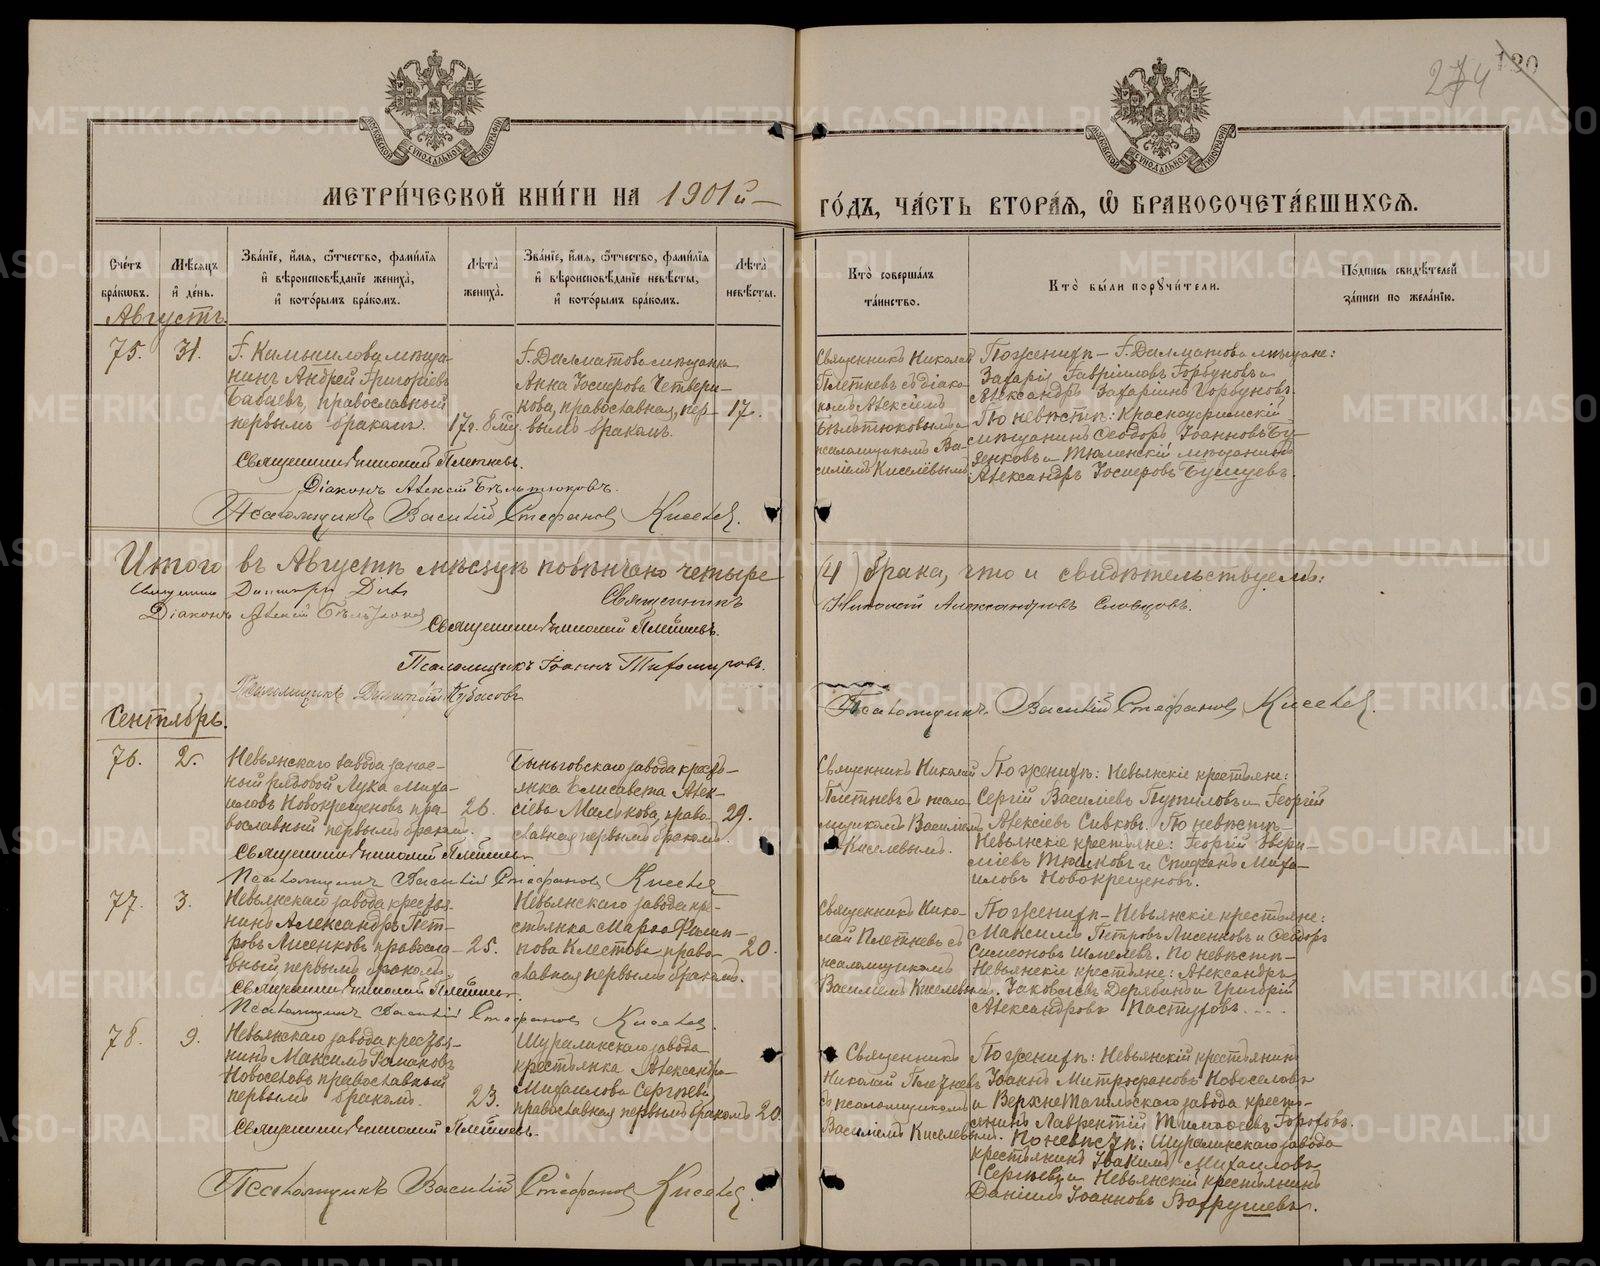 274 130
МОСКОВСКОЙ СѴНОДАЛЬНОЙ ТИПОГРАФІИ
МОСКОВСКОЙ СѴНОДАЛЬНОЙ ТИПОГРАФІИ
МЕТРИ́ЧЕСКОЙ КНИ́ГИ НА 1901й
ГО́ДЪ, ЧА́СТЬ ВТОРА́Я, Ѡ҆ БРАКОСОЧЕТА́ВШИХСѦ.
Сче́тъ бра́кωвъ.
Мѣ́сяцъ и҆ де́нь.
Зва́нїе, и҆́мя, ѻ҆́тчество, фами́лїя и҆ вѣроисповѣ́данїе жениха̀, и҆ кото́рымъ бра́комъ.
Лѣ́та жениха̀.
Зва́нїе, и҆́мя, ѻ҆́тчество, фами́лїя и҆ вѣроисповѣ́данїе невѣ́сты, и҆ кото́рымъ бра́комъ.
Лѣ́та невѣ́сты.
Кто̀ соверша́лъ та́инство.
Кто̀ бы́ли порꙋчи́тели.
По́дпись свидѣ́телей за́писи по жела́нїю.
Августъ.
75.
31.
г. Камышлова мѣща-
нинъ Андрей Григоріевъ
Бабаевъ, православный
первымъ бракомъ.
17 г. 8 м.
г. Далматова мѣщанка
Анна Іосифова Четвери-
кова, православная, пер-
вымъ бракомъ.
17.
Священникъ Николай
Плетневъ съ діако-
номъ Алексіемъ
Бѣльтюковымъ и
псаломщикомъ Ва-
силіемъ Киселевымъ
По женихѣ – г. Далматова мѣщане:
Захарія Гавріиловъ Горбуновъ и
Александръ Захаріинъ Горбуновъ.
По невѣстѣ: Красноуфимскій
мѣщанинъ Ѳеодоръ Іоанновъ
и Тюменскій мѣщанинъ
Александръ Іосифовъ
Священникъ Николай Плетневъ.
Діаконъ Алексій Бѣльтюковъ.
Псаломщикъ Василій Стефановъ Киселевъ.
Итого въ Августѣ мѣсяцѣ повѣнчано четыре
(4) брака, что и свидѣтельствуемъ:
Священникъ Димитрій
Священникъ
Николай Александровъ Словцовъ.
Діаконъ Алексій Бѣльтюковъ
Священникъ Николай Плетневъ.
Псаломщикъ Іоаннъ Тихомировъ.
Псаломщикъ
Псаломщикъ Василій Стефановъ Киселевъ.
Сентябрь.
76.
2.
Невьянскаго завода запас-
ный рядовой Лука Миха-
иловъ Новокрещеновъ пра-
вославный первымъ бракомъ.
26.
Быньговскаго завода кресть-
янка Елисавета Алек-
сіева Маликова, право-
славная первымъ бракомъ.
29.
Священникъ Николай
Плетневъ съ псало-
мщикомъ Василіемъ
Киселевымъ.
По женихѣ: Невьянскіе крестьяне:
Сергій Василіевъ Путиловъ и Георгій
Алексіевъ Сивковъ. По невѣстѣ –
Невьянскіе крестьяне: Георгій
и Стефанъ Миха-
иловъ Новокрещеновъ.
Священникъ Николай Плетневъ
Псаломщикъ Василій Стефановъ Киселевъ
77.
3.
Невьянскаго завода крестья-
нинъ Александръ Пет-
ровъ Лисенковъ правосла-
вный первымъ бракомъ
25.
Невьянскаго завода кре-
стьянка Марѳа Филип-
пова Клестова право-
славная первымъ бракомъ.
20.
Священникъ Нико-
лай Плетневъ съ
псаломщикомъ
Василіемъ Киселевымъ.
По женихѣ – Невьянскіе крестьяне:
Максимъ Петровъ Лисенковъ и Ѳеодоръ
Симеоновъ Шмелевъ. По невѣстѣ –
Невьянскіе крестьяне: Александръ
Іаковлевъ Дерябинъ и Григорій
Александровъ Пастуховъ.
Священникъ Николай Плетневъ.
Псаломщикъ Василій Стефановъ Киселевъ.
78.
9.
Невьянскаго завода крестья-
нинъ Максимъ Романовъ
Новоселовъ православный
первымъ бракомъ.
23.
Шуралинскаго завода
крестьянка Александра
Михаилова Сергѣева
православная первымъ бракомъ
20.
Священникъ
Николай Плетневъ
съ псаломщикомъ
Василіемъ Киселевымъ.
По женихѣ: Невьянскій крестьянинъ
Іоаннъ Митрофановъ Новоселовъ
и Верхнетагильскаго завода кресть-
янинъ Лаврентій Тимоѳеевъ Гороховъ.
По невѣстѣ: Шуралинскаго завода
крестьянинъ Іоакимъ Михаиловъ
Сергѣевъ и Невьянскій крестьянинъ
Даніилъ Іоанновъ Вахрушевъ.
Священникъ Николай Плетневъ.
Псаломщикъ Василій Стефановъ Киселевъ.
METRIKI.GASO-URAL.RU